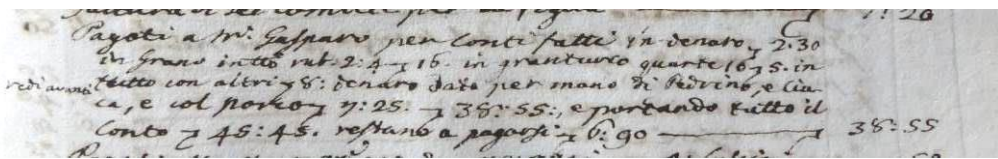 7: 20
Pagati a Mr. Gasparo per Conti fatti in denaro 2.30
in Grano in tto rub. 2:4 16. in granturco quarte 16 5. in
vedi avanti tutto con altri 8: denaro dato per mano di Pedrino, e Cia
ca, e col porco 7:25. 38:55:, e portando tutto il
Conto 45:45. restano a pagarsi 6:90 38:55